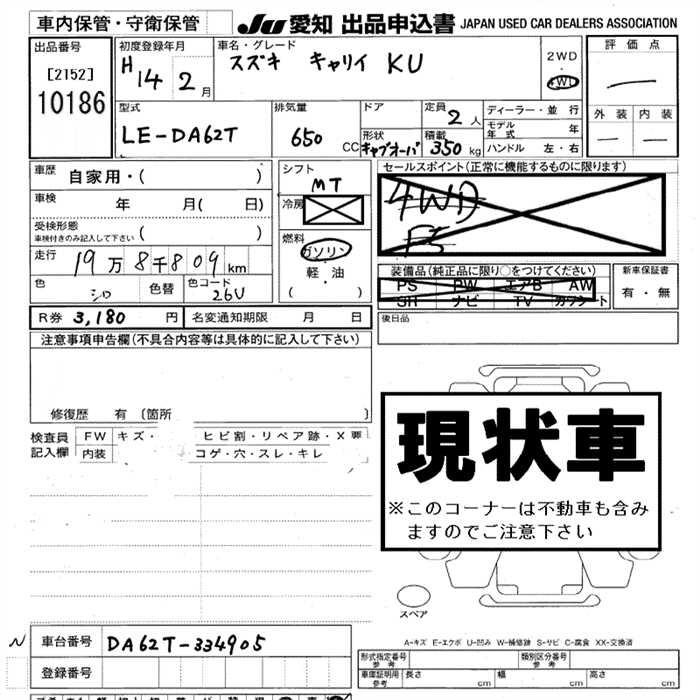 車内保管・守衛保管
JU 愛知 出品申込書 JAPAN USED CAR DEALERS ASSOCIATION
出品番号 [2152] 10186
初度登録年月 H14 2月
車名・グレード スズキ キャリイ KU
2WD・4WD
評価点
外装 内装
型式 LE-DA62T
排気量 650 CC
ドア
形状 キャブオーバ
定員 2人
積載 350 kg
ディーラー・並行
モデル年式 年
ハンドル 左・右
車歴 自家用・( )
車検 年 月( 日)
受検形態
車検付きのみ記入して下さい ( )
走行 19万8千809km
色 シロ 色替 色コード 26U
シフト MT
冷房
燃料 ガソリン
軽・油
( )
セールスポイント(正常に機能するものに限ります)
4WD
F5
装備品(純正品に限り○をつけてください)
PS PW エアB AW
SH ナビ TV カワシート
新車保証書
有・無
R券 3,180 円 名変通知期限 月 日
後日品
注意事項申告欄(不具合内容等は具体的に記入して下さい)
修復歴 有〔箇所 〕
検査員記入欄 FW キズ・ ヒビ割・リペア跡・X要
内装 コゲ・穴・スレ・キレ
現状車
※このコーナーは不動車も含み
ますのでご注意下さい
スペア
A-キズ E-エクボ U-凹み W-補修跡 S-サビ C-腐食 XX-交換済
N 車台番号 DA62T-334905
登録番号
形式指定番号 参考 類別区分番号 参考
車庫証明用 参考 長さ cm 幅 cm 高さ cm